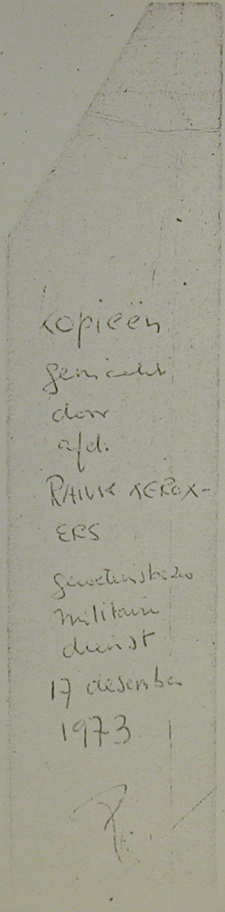 kopieën
gemaakt
door
afd.
RANK XEROX-
ERS
militair
dienst
17 desember
1973